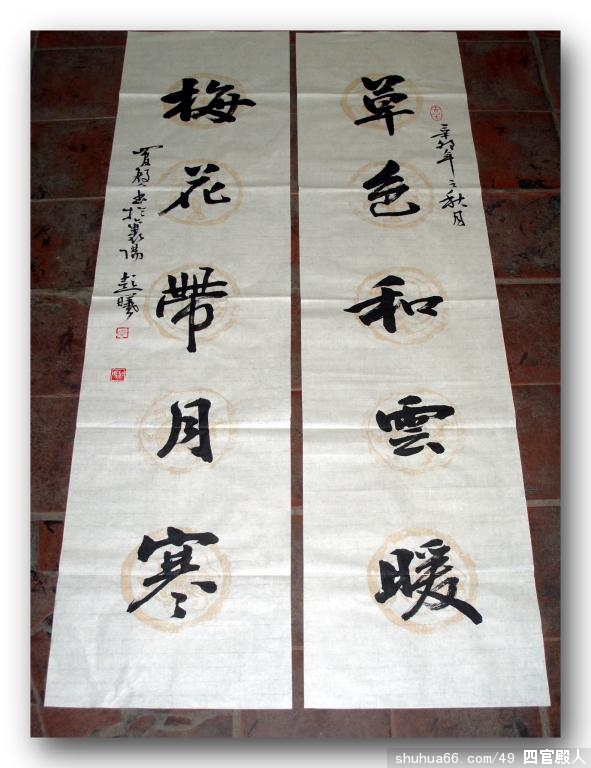 草色和雲暖
辛卯年之秋月
梅花帶月寒
書於襄陽
shuhua66.com/49 四官殿人